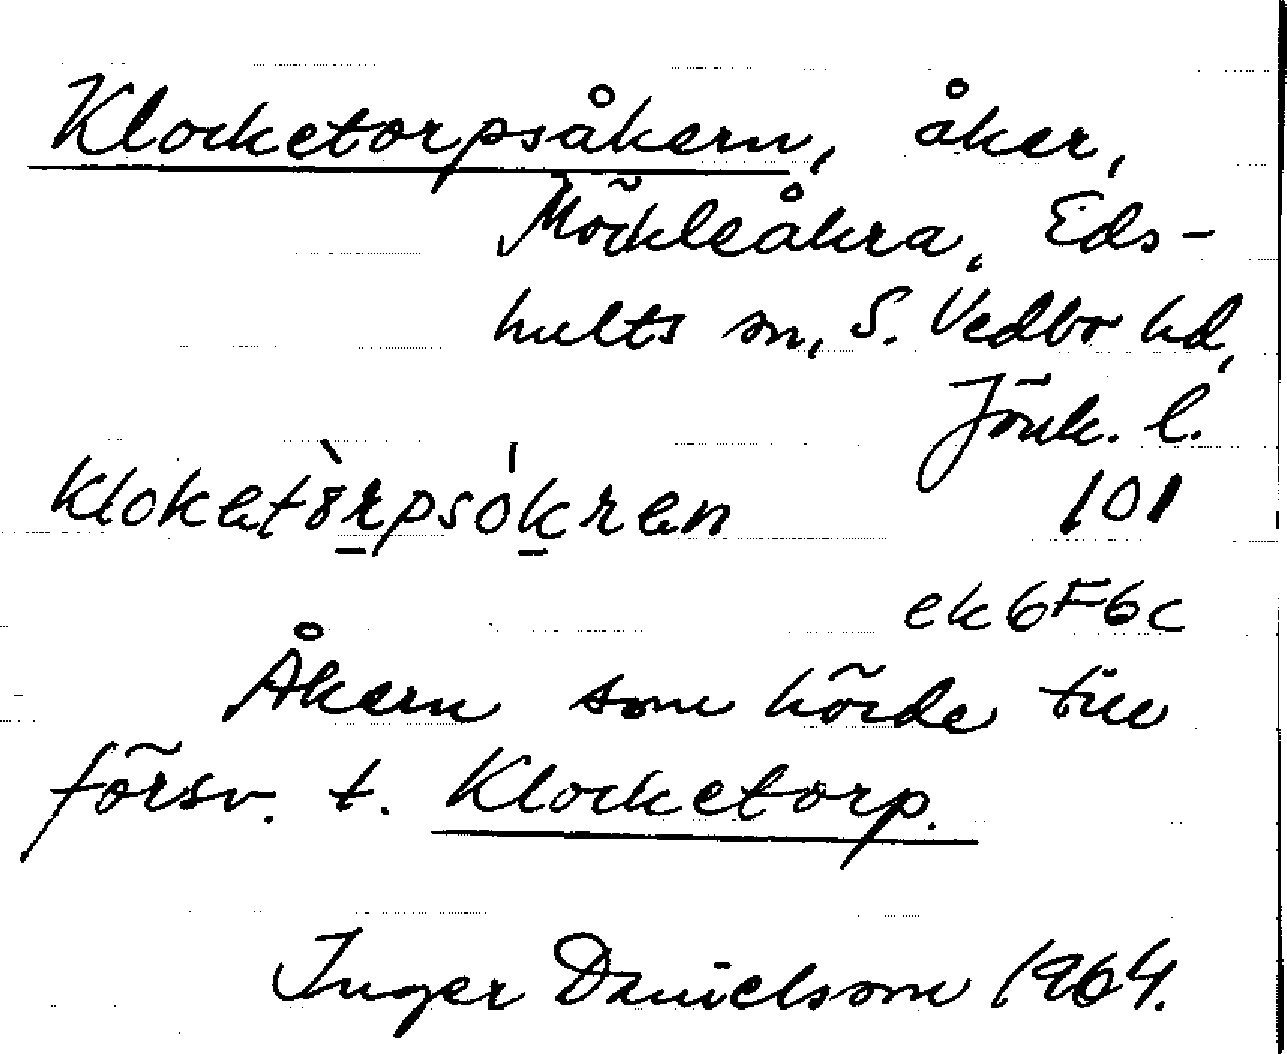 Klocketorpsåkern, åker,
Möckleåkra, Eds-
hults sn, S. Vedbo hd,
Jönk. l.
Klokatòrpsókran 101
ek6F6c
Åkern som hörde till
försv. t. Klocketorp.
Inger Danielsson 1964.